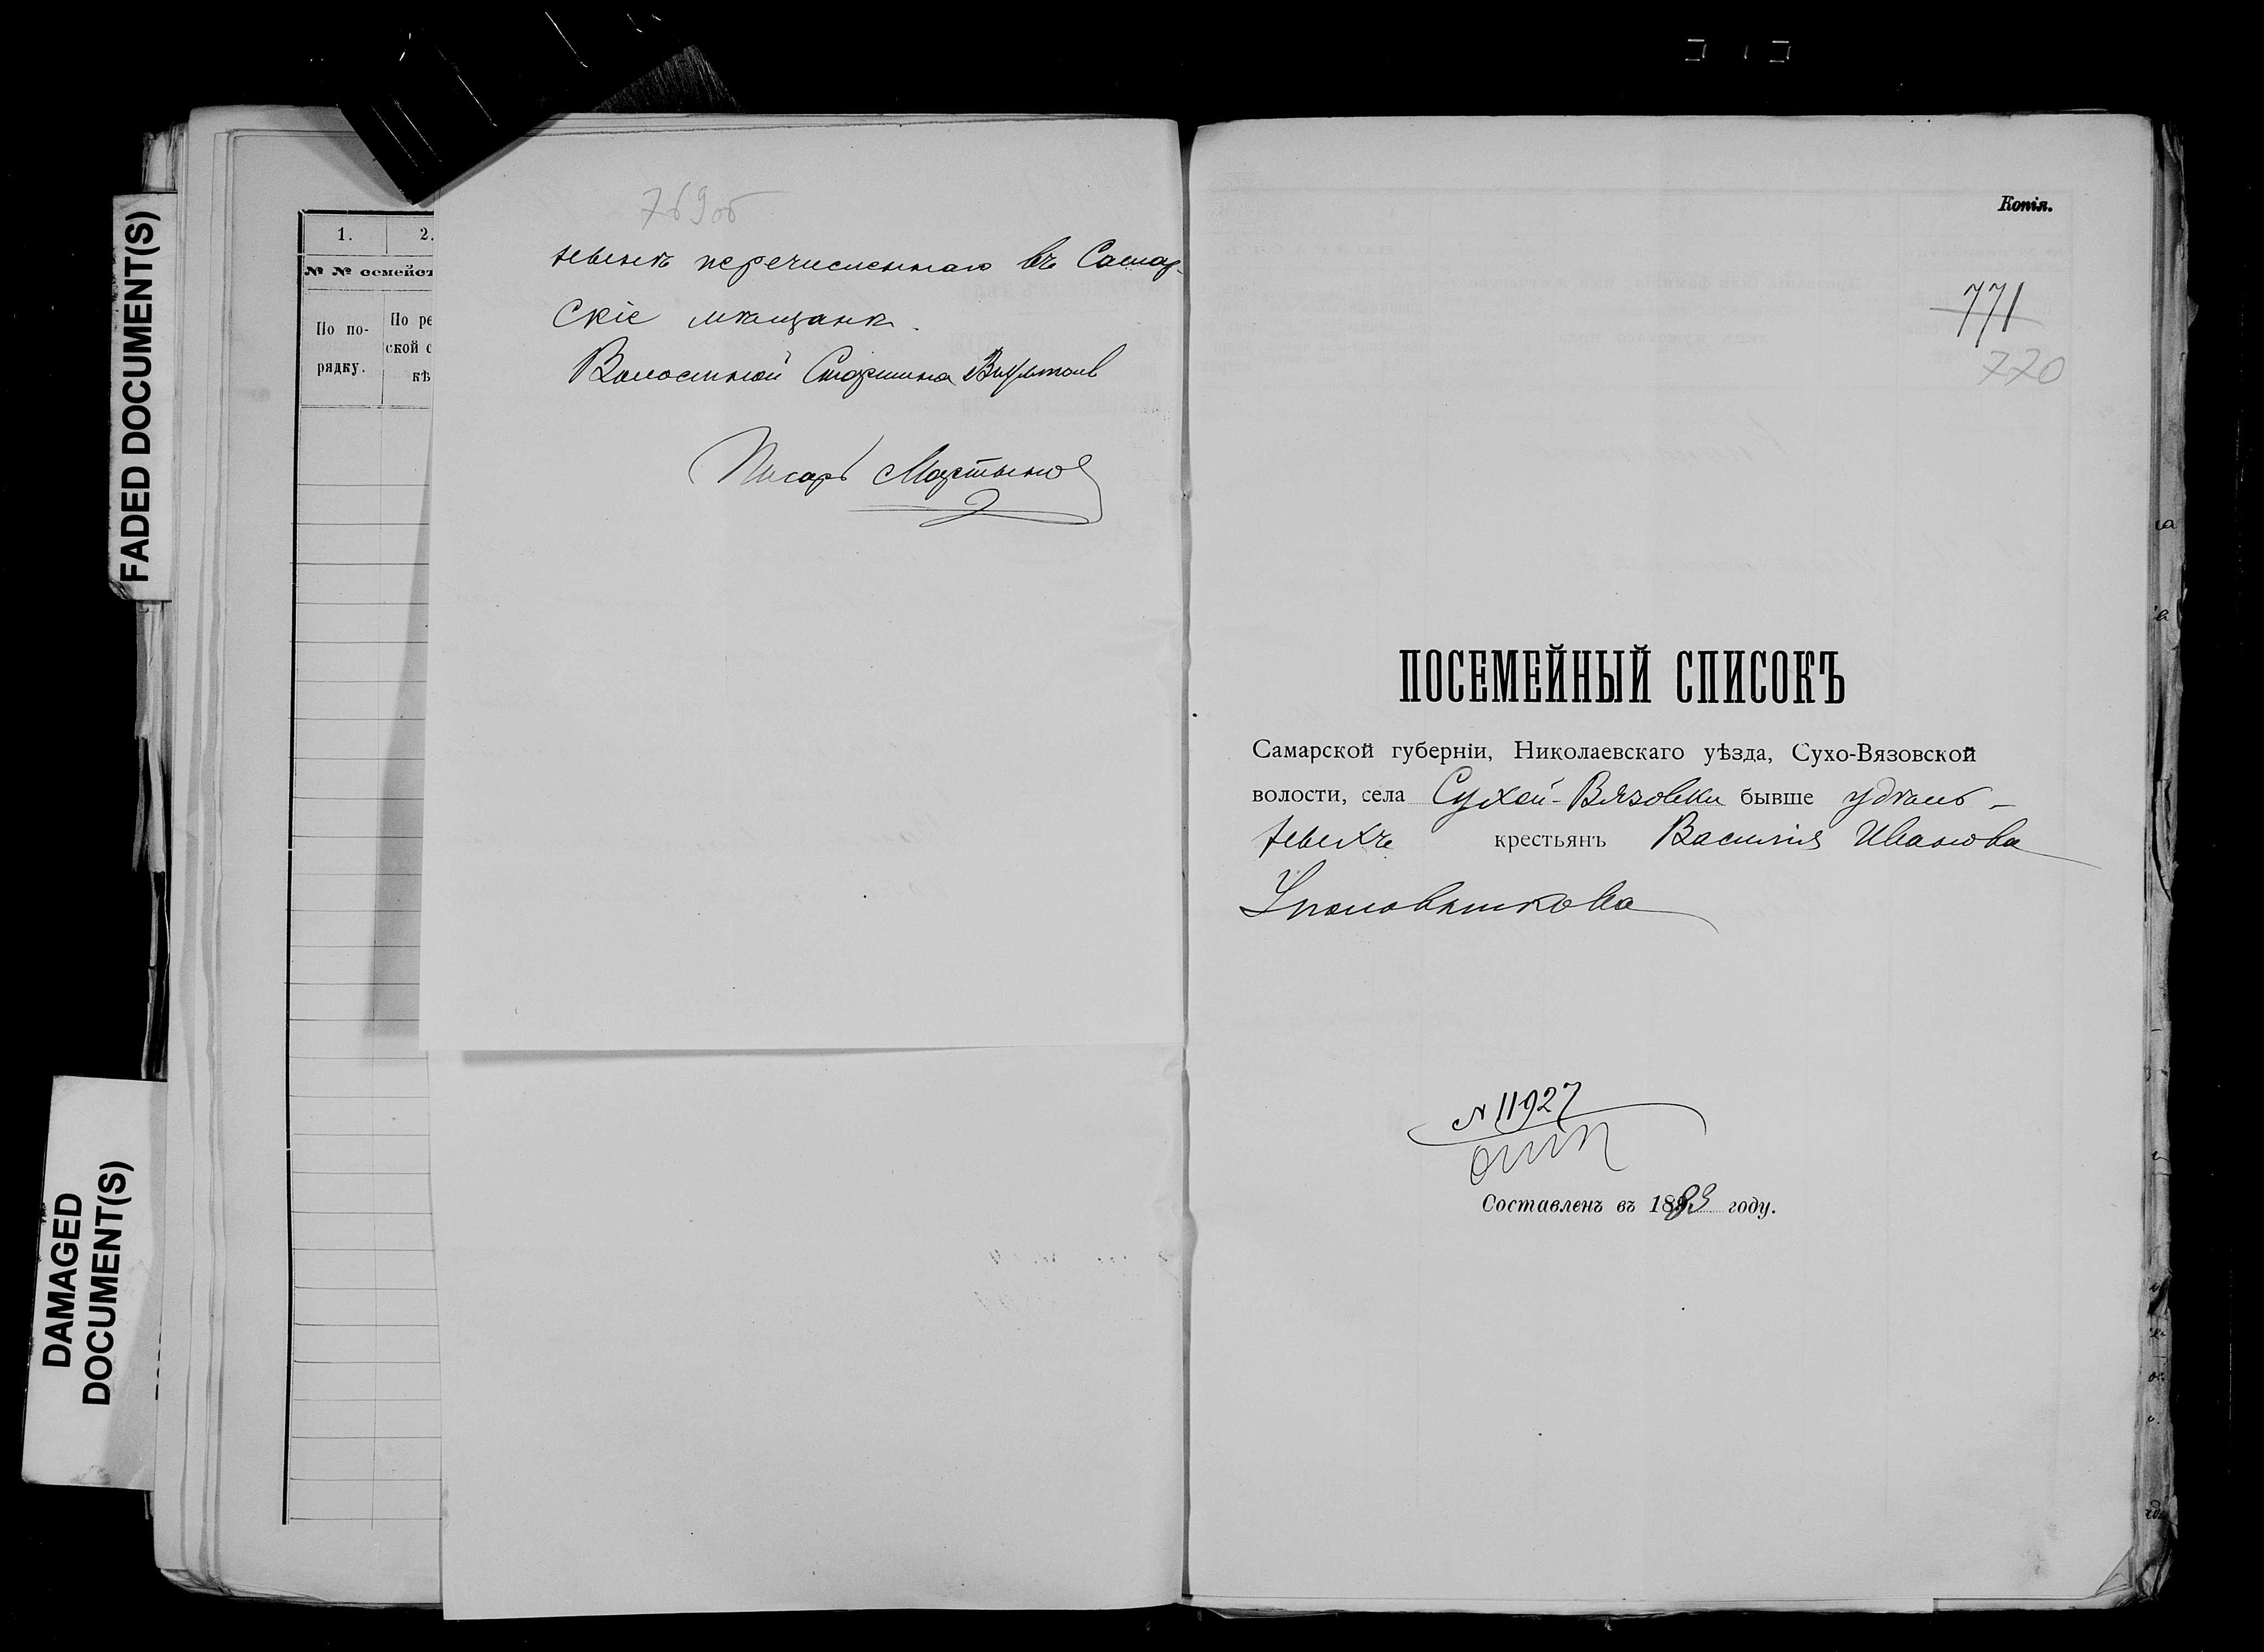 FADED DOCUMENT(S)
DAMAGED
DOCUMENT(S)
1. 2.
№ № семейст
По по-
рядку.
По ре
ской с
кѣ
769об
перечисленнаго въ Самар-
скіе мѣщане.
Волостной Старшина
Писарь Мартынов
Копія.
771
770
ПОСЕМЕЙНЫЙ СПИСОКЪ
Самарской губерніи, Николаевскаго уѣзда, Сухо-Вязовской
волости, села Сухой-Вязовки бывше удѣль-
ныхъ крестьянъ Василія Иванова
Уполовникова
№ 11927
Составленъ въ 1883 году.